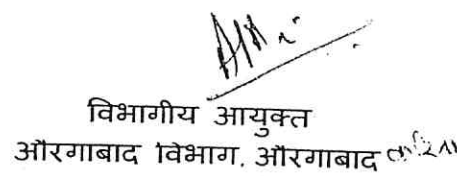 विभागीय आयुक्त
औरगाबाद विभाग, औरगाबाद करिता